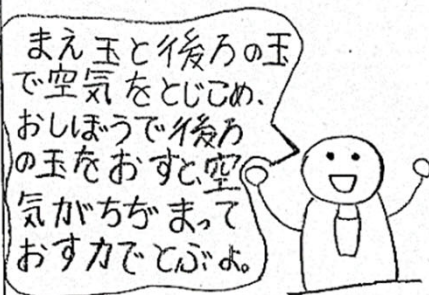 まえ玉と後ろの玉
で空気をとじこめ、
おしぼうで後ろ
の玉をおすと、空
気がちぢまって
おす力でとぶよ。